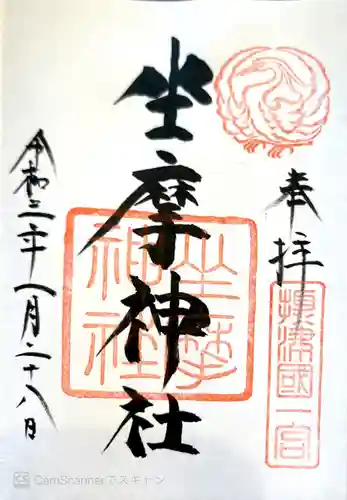 奉拝
摂津國一宮
坐摩神社
坐摩
神社
令和三年一月二十八日
CamScannerでスキャン